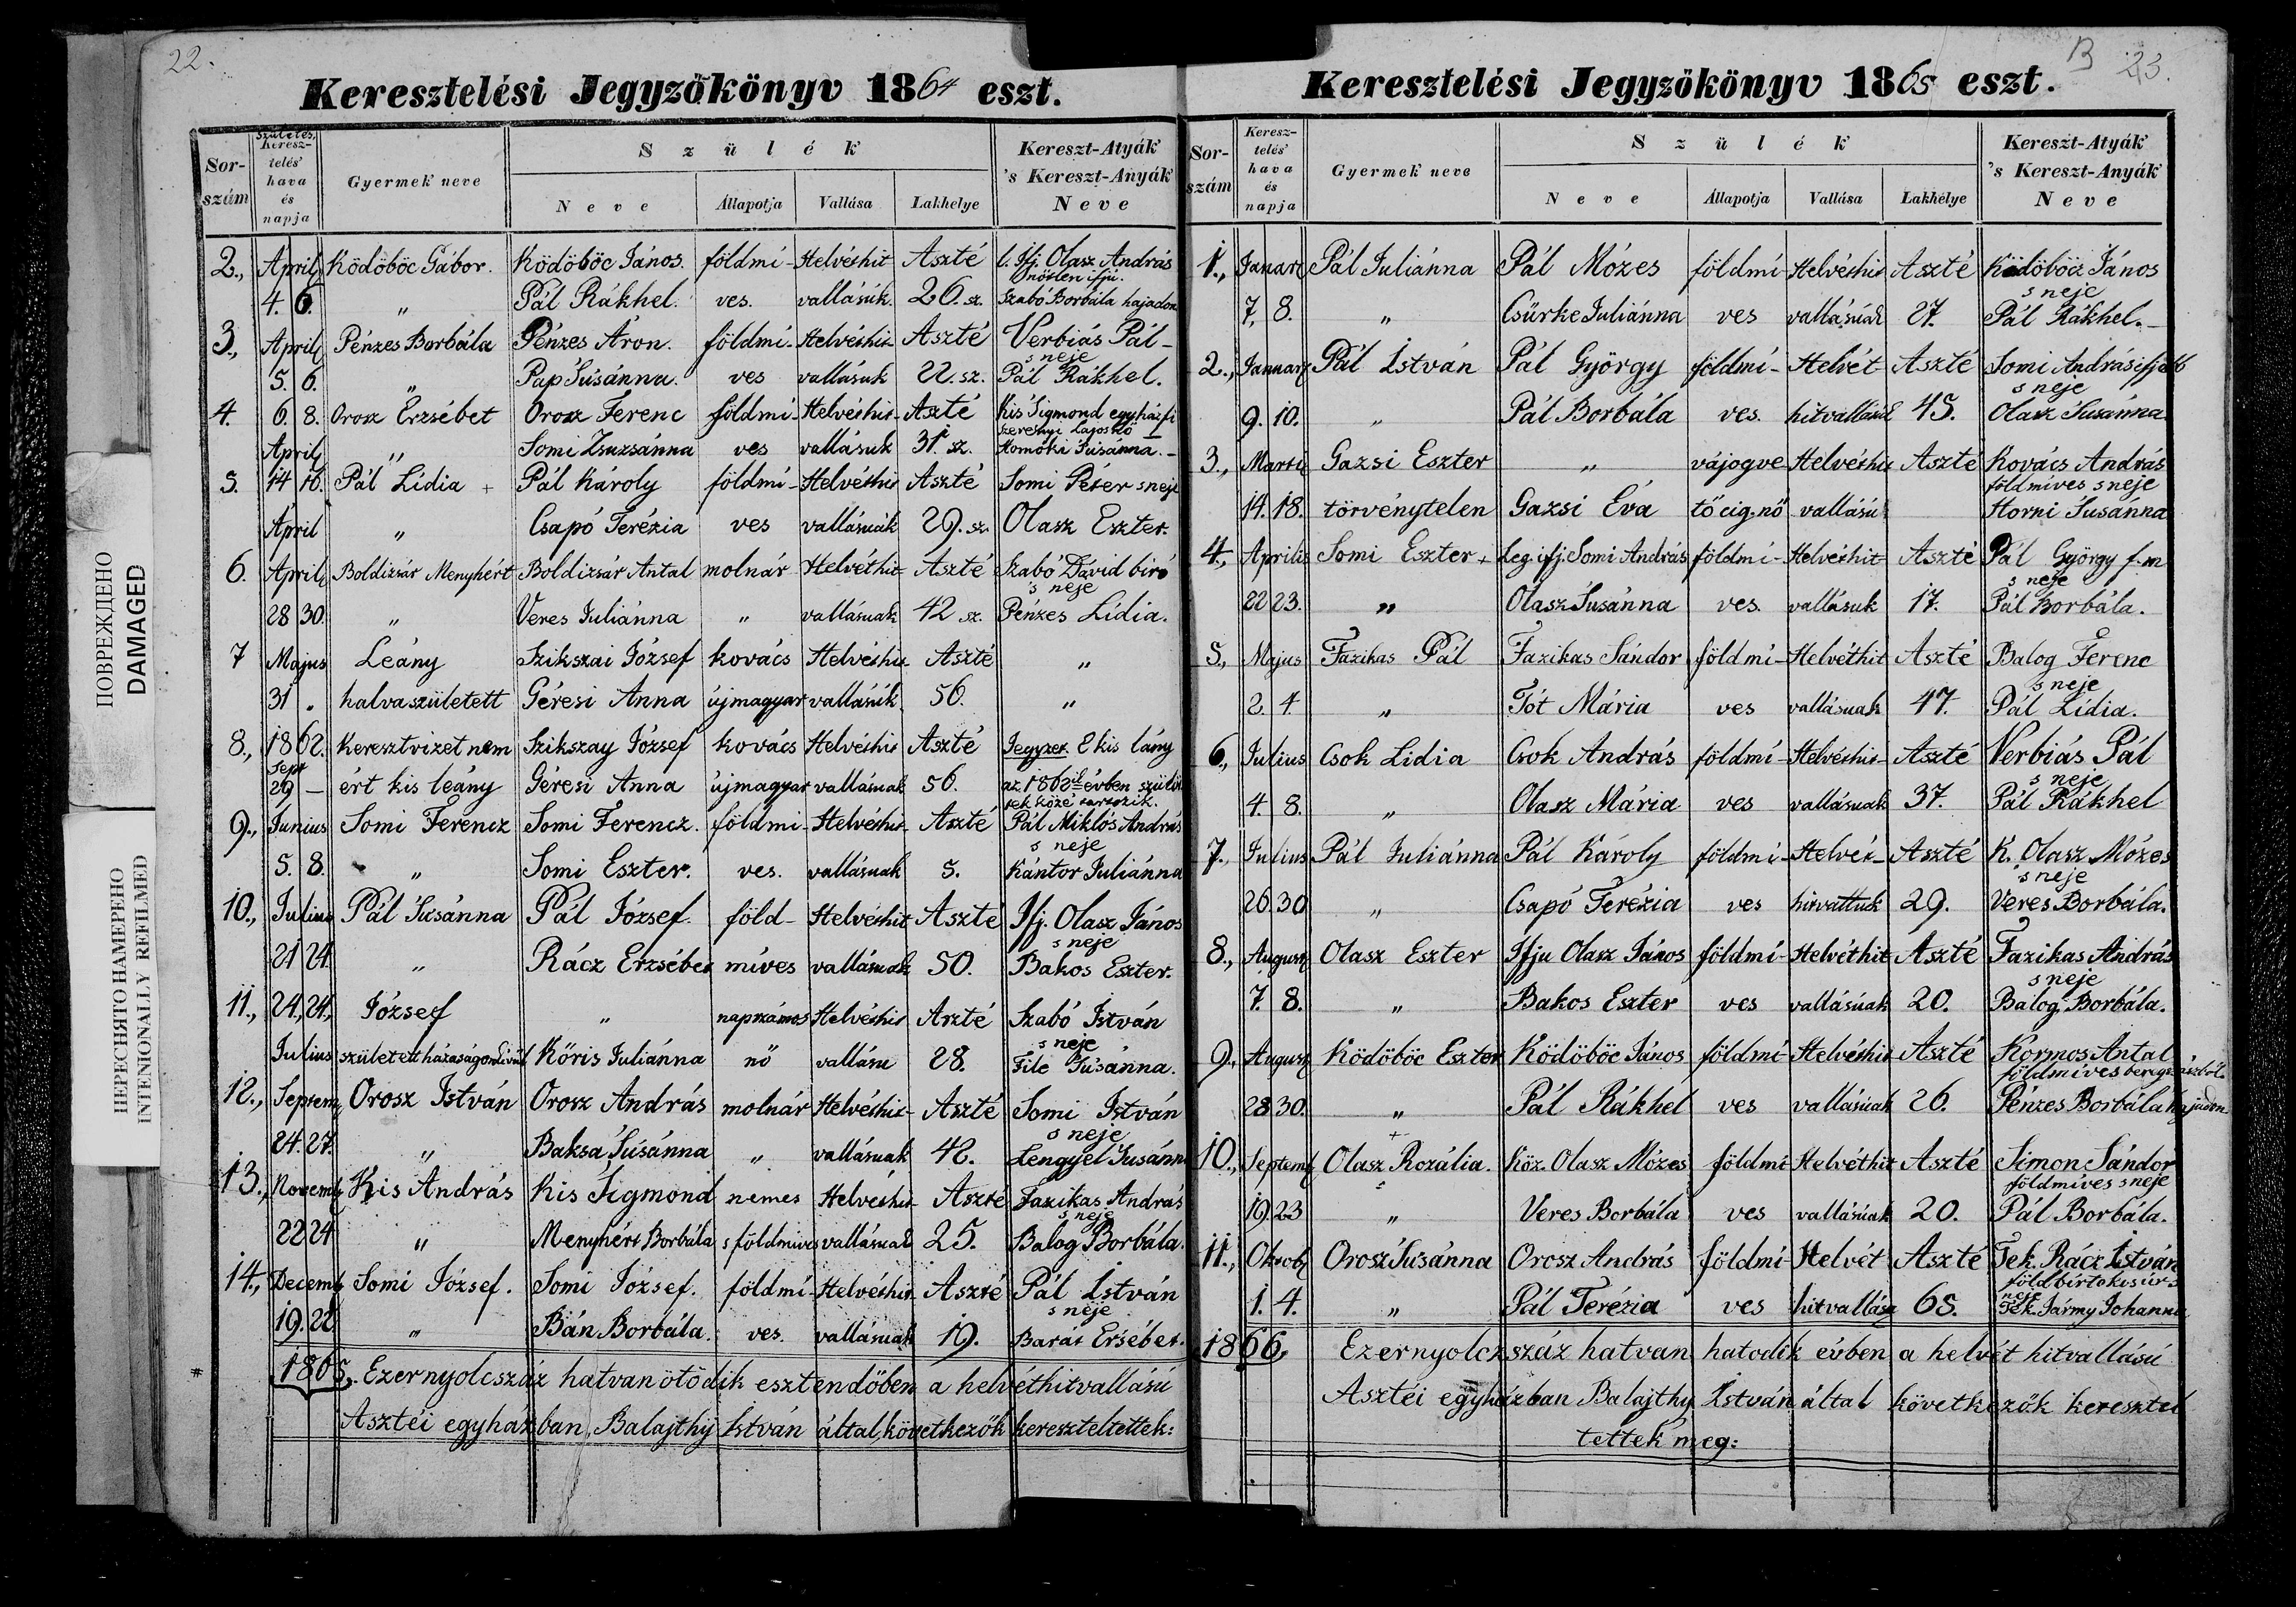 22.
Keresztelési Jegyzőkönyv 1864 eszt.
Sor-szám
Születés,
Keresz-telés' hava és napja
Gyermek' neve
Szülék
Neve
Állapotja
Vallása
Lakhelye
Kereszt-Atyák 's Kereszt-Anyák Neve
2., April Ködöböc Gábor. Ködöböc János. földmí- Helvéthit Aszté Ifj. Olasz András
nőtlen ifjú.
4. 6. " Pál Rákhel. ves. vallásúk. 26. sz. Szabó Borbála hajadon
3., April Pénzes Borbála Pénzes Áron. földmí- Helvéthit- Aszté Verbiás Pál-
s neje
5. 6. " Pap Súsánna. ves vallásuk 22. sz. Pál Rákhel.
4. 6. 8. Orosz Erzsébet Orosz Ferenc földmí- Helvéthit- Aszté Kis Sigmond egyházfi
Szerényi Lajosnő
April " Somi Zsuzsánna ves vallásuk 31. sz. Homoki Súsánna.-
5. 14 16. Pál Lidia + Pál Károly földmí- Helvéthit Aszté Somi Péter s neje
April " Csapó Terézia ves vallásuák 29. sz. Olasz Eszter.
6. April Boldizsár Menyhért Boldizsár Antal molnár Helvéthit- Aszté Szabó Dávid biró
s neje
28 30. " Veres Juliánna " vallásuak 42 sz. Pénzes Lidia.
7 Majus Leány Szikszai József kovács Helvéthit Aszté "
31 " halva született Géresi Anna újmagyar vallásúk 56. "
8., 1862. Keresztvizet nem Szikszay József kovács Helvéthit Aszté Jegyzet. E kis lány
Sept
29 - ért kis leány Géresi Anna újmagyar vallásuak 56. az 1862ik évben szülöt
tek közé tartozik.
9., Junius Somi Ferencz Somi Ferencz. földmi- Helvéthit- Aszté Pál Miklós András
s neje
5. 8. " Somi Eszter. ves. vallásuak 5. Kántor Juliánna
10., Julius Pál Súsánna Pál József. föld- Helvéthit Aszté Ifj. Olasz János
s neje
21 24. " Rácz Erzsébet míves vallásuak 50. Bakos Eszter.
11., 24., 24., József " napszámos Helvéthit Aszté Szabó István
s neje
Julius született házaságon kivül Kőris Juliánna nő vallásu 28. File Súsánna.
12., Septem, Orosz István Orosz András molnár Helvéthit- Aszté Somi István
s neje
24. 27. " Baksa Súsánna " vallásuak 42. Lengyel Susánn
13., Novemb Kis András Kis Sigmond nemes Helvéthit- Aszté Fazikas András
s neje
22 24 " Menyhért Borbála s földmives vallásuak 25. Balog Borbála.
14., Decemb Somi József. Somi József. földmí- Helvéthit Aszté Pál István
s neje
19. 22 " Bán Borbála. ves. vallásuak 19. Barát Ersébet.
1865, Ezernyolcszáz hatvanötödik esztendőben a helvéthitvallású
Asztéi egyházban, Balajthy István által, következők kereszteltettek:
B 23.
Keresztelési Jegyzőkönyv 1865 eszt.
Sor-szám
Keresz-telés' hava és napja
Gyermek neve
Szülék
Neve
Állapotja
Vallása
Lakhelye
Kereszt-Atyák 's Kereszt-Anyák Neve
1., Januar Pál Juliánna Pál Mózes földmí Helvéthit Aszté Ködöböcz János
s neje
7. 8. " Csürke Juliánna ves vallásúak 27. Pál Rákhel.-
2., Januar Pál István Pál György földmí- Helvét- Aszté Somi András ifjabb
s neje
9. 10. " Pál Borbála ves. hitvallásúk 45. Olasz Susánna
3., Martii Gazsi Eszter " vájogve- Helvéthit Aszté Kovács András
földmíves s neje
14. 18. törvénytelen Gazsi Éva tő cig. nő vallásu Horni Súsánna
4., Aprilis Somi Eszter + Leg. ifj. Somi András földmí- Helvéthit- Aszté Pál György f.m
s neje
22 23. " Olasz Susánna ves. vallásuk 17. Pál Borbála.
5., Majus Fazikas Pál Fazikas Sándor földmí- Helvéthit Aszté Balog Ferenc
s neje
2. 4. " Tót Mária ves vallásuak 47. Pál Lidia.
6., Julius Csok Lidia Csok András földmí- Helvéthit- Aszté Verbiás Pál
s neje
4. 8. " Olasz Mária ves vallásuak 37. Pál Rákhel
7., Julius Pál Juliánna Pál Károly földmí- Helvét- Aszté K. Olasz Mózes
s neje
26. 30 " Csapó Terézia ves 29. Veres Borbála.
8., August Olasz Eszter Ifju Olasz János földmí- Helvéthit- Aszté Fazikas András
s neje
7. 8. " Bakos Eszter ves vallásúak 20. Balog Borbála.
9., August Ködöböc Eszter Ködöböc János földmí- Helvéthit Aszté Kormos Antal
földmíves
28 30. " Pál Rákhel ves vallásúak 26. Pénzes Borbála hajadon
+
10., Septemb Olasz Rozália. Köz. Olasz Mózes földmí Helvéthit Aszté Simon Sándor
földmíves s neje
19. 23 " Veres Borbála ves vallásúak 20. Pál Borbála.
11., Oktob Orosz Susánna Orosz András földmí- Helvét Aszté Tek. Rácz István
földbirtokos úr s
neje
1. 4. " Pál Terézia ves hitvallásu 65. Tek. Jármy Johanna
1866, Ezernyolczszáz hatvan hatodik évben a helvét hitvallású
Asztéi egyházban Balajthy István által következők keresztel
tettek meg:
ПОВРЕЖДЕНО
DAMAGED
ПЕРЕСНЯТО НАМЕРЕНО
INTENIONALLY REFILMED